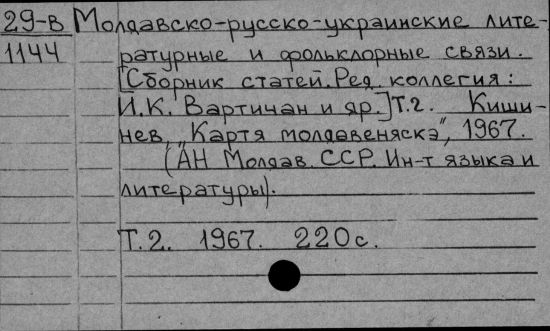 29-В Молдавско-русско-украинские лите-
1144 ратурные и фольклорные связи.
[Сборник статей. Ред. коллегия:
И.К. Вартичан и др.] Т.2. Киши-
нев, "Картя молдавеняскэ", 1967.
(АН Молдав. ССР. Ин-т языка и
литературы).
Т.2. 1967. 220с.